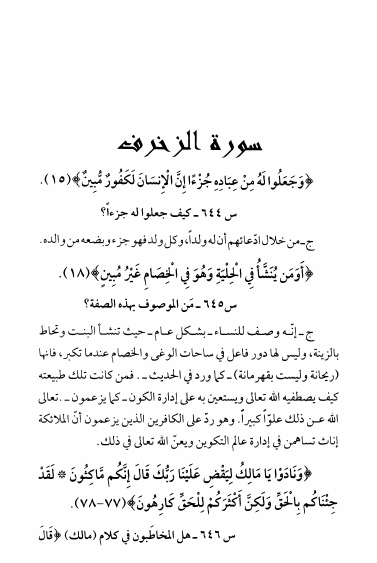 سورة الزخرف
﴿وَجَعَلُوا لَهُ مِنْ عِبَادِهِ جُزْءًا إِنَّ الْإِنسَانَ لَكَفُورٌ مُّبِينٌ﴾(١٥).
س ٦٤٤ ـ كيف جعلوا له جزءاً؟
ج ـ من خلال ادّعائهم أن له ولداً، وكل ولد فهو جزء وبضعه من والده.
﴿أَوَمَن يُنَشَّأُ فِي الْحِلْيَةِ وَهُوَ فِي الْخِصَامِ غَيْرُ مُبِينٍ﴾(١٨).
س٦٤٥ ـ مَن الموصوف بهذه الصفة؟
ج ـ إنّه وصف للنساء ـ بشكل عام ـ حيث تنشأ البنت وتحاط
بالزينة، وليس لها دور فاعل في ساحات الوغى والخصام عندما تكبر، فانها
(ريحانة وليست بقهرمانة) ـ كما ورد في الحديث ـ. فمن كانت تلك طبيعته
كيف يصطفيه الله تعالى ويستعين به على إدارة الكون ـ كما يزعمون ـ. تعالى
الله عن ذلك علوّاً كبيراً. وهو ردّ على الكافرين الذين يزعمون أنّ الملائكة
إناث تساهمن في إدارة عالم التكوين ويعنّ الله تعالى في ذلك.
﴿وَنَادَوْا يَا مَالِكُ لِيَقْضِ عَلَيْنَا رَبُّكَ قَالَ إِنَّكُم مَّاكِثُونَ * لَقَدْ
جِئْنَاكُم بِالْحَقِّ وَلَكِنَّ أَكْثَرَكُمْ لِلْحَقِّ كَارِهُونَ﴾(٧٧-٧٨).
س ٦٤٦ ـ هل المخاطَبون في كلام (مالك) ﴿قَالَ